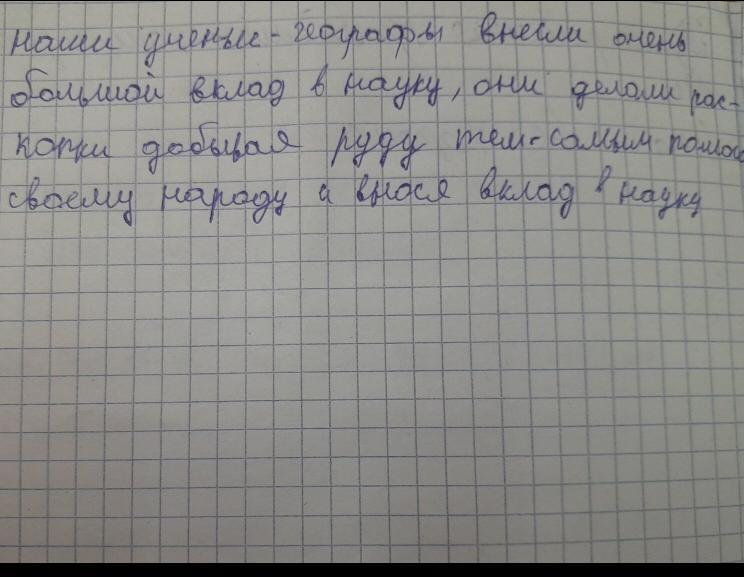 наши ученые-географы внесли очень
большой вклад в науку, они делали рас-
копки добывая руду тем-самым помога
своему народу и внося вклад в науку